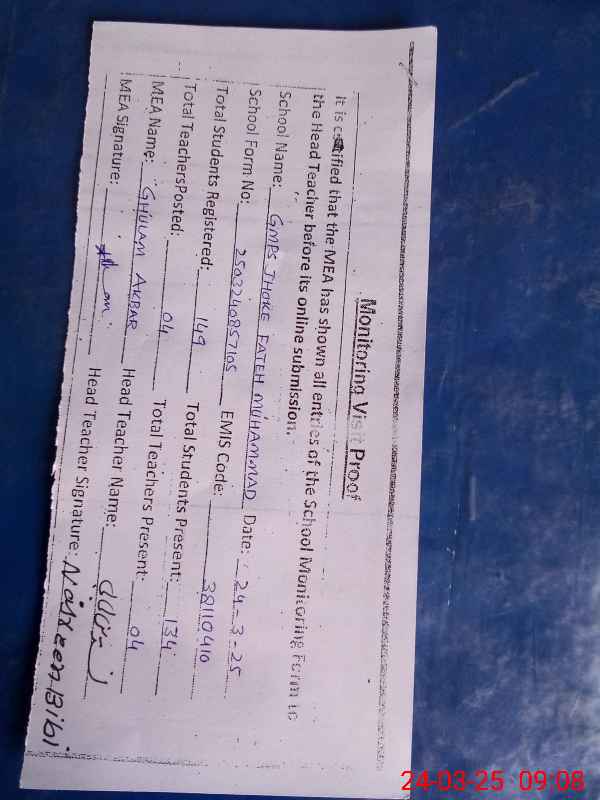 Monitoring Visit Proof
It is certified that the MEA has shown all entries of the School Monitoring Form to
the Head Teacher before its online submission.
School Name: GMPS JHOKE FATEH MUHAMMAD Date: 24-3-25
School Form No: 250324085710S EMIS Code: 38110410
Total Students Registered: 149 Total Students Present: 134
Total Teachers Posted: 04 Total Teachers Present: 04
MEA Name: GHULAM AKBAR Head Teacher Name:
MEA Signature: Head Teacher Signature: Nasreen Bibi
24-03-25 09:08